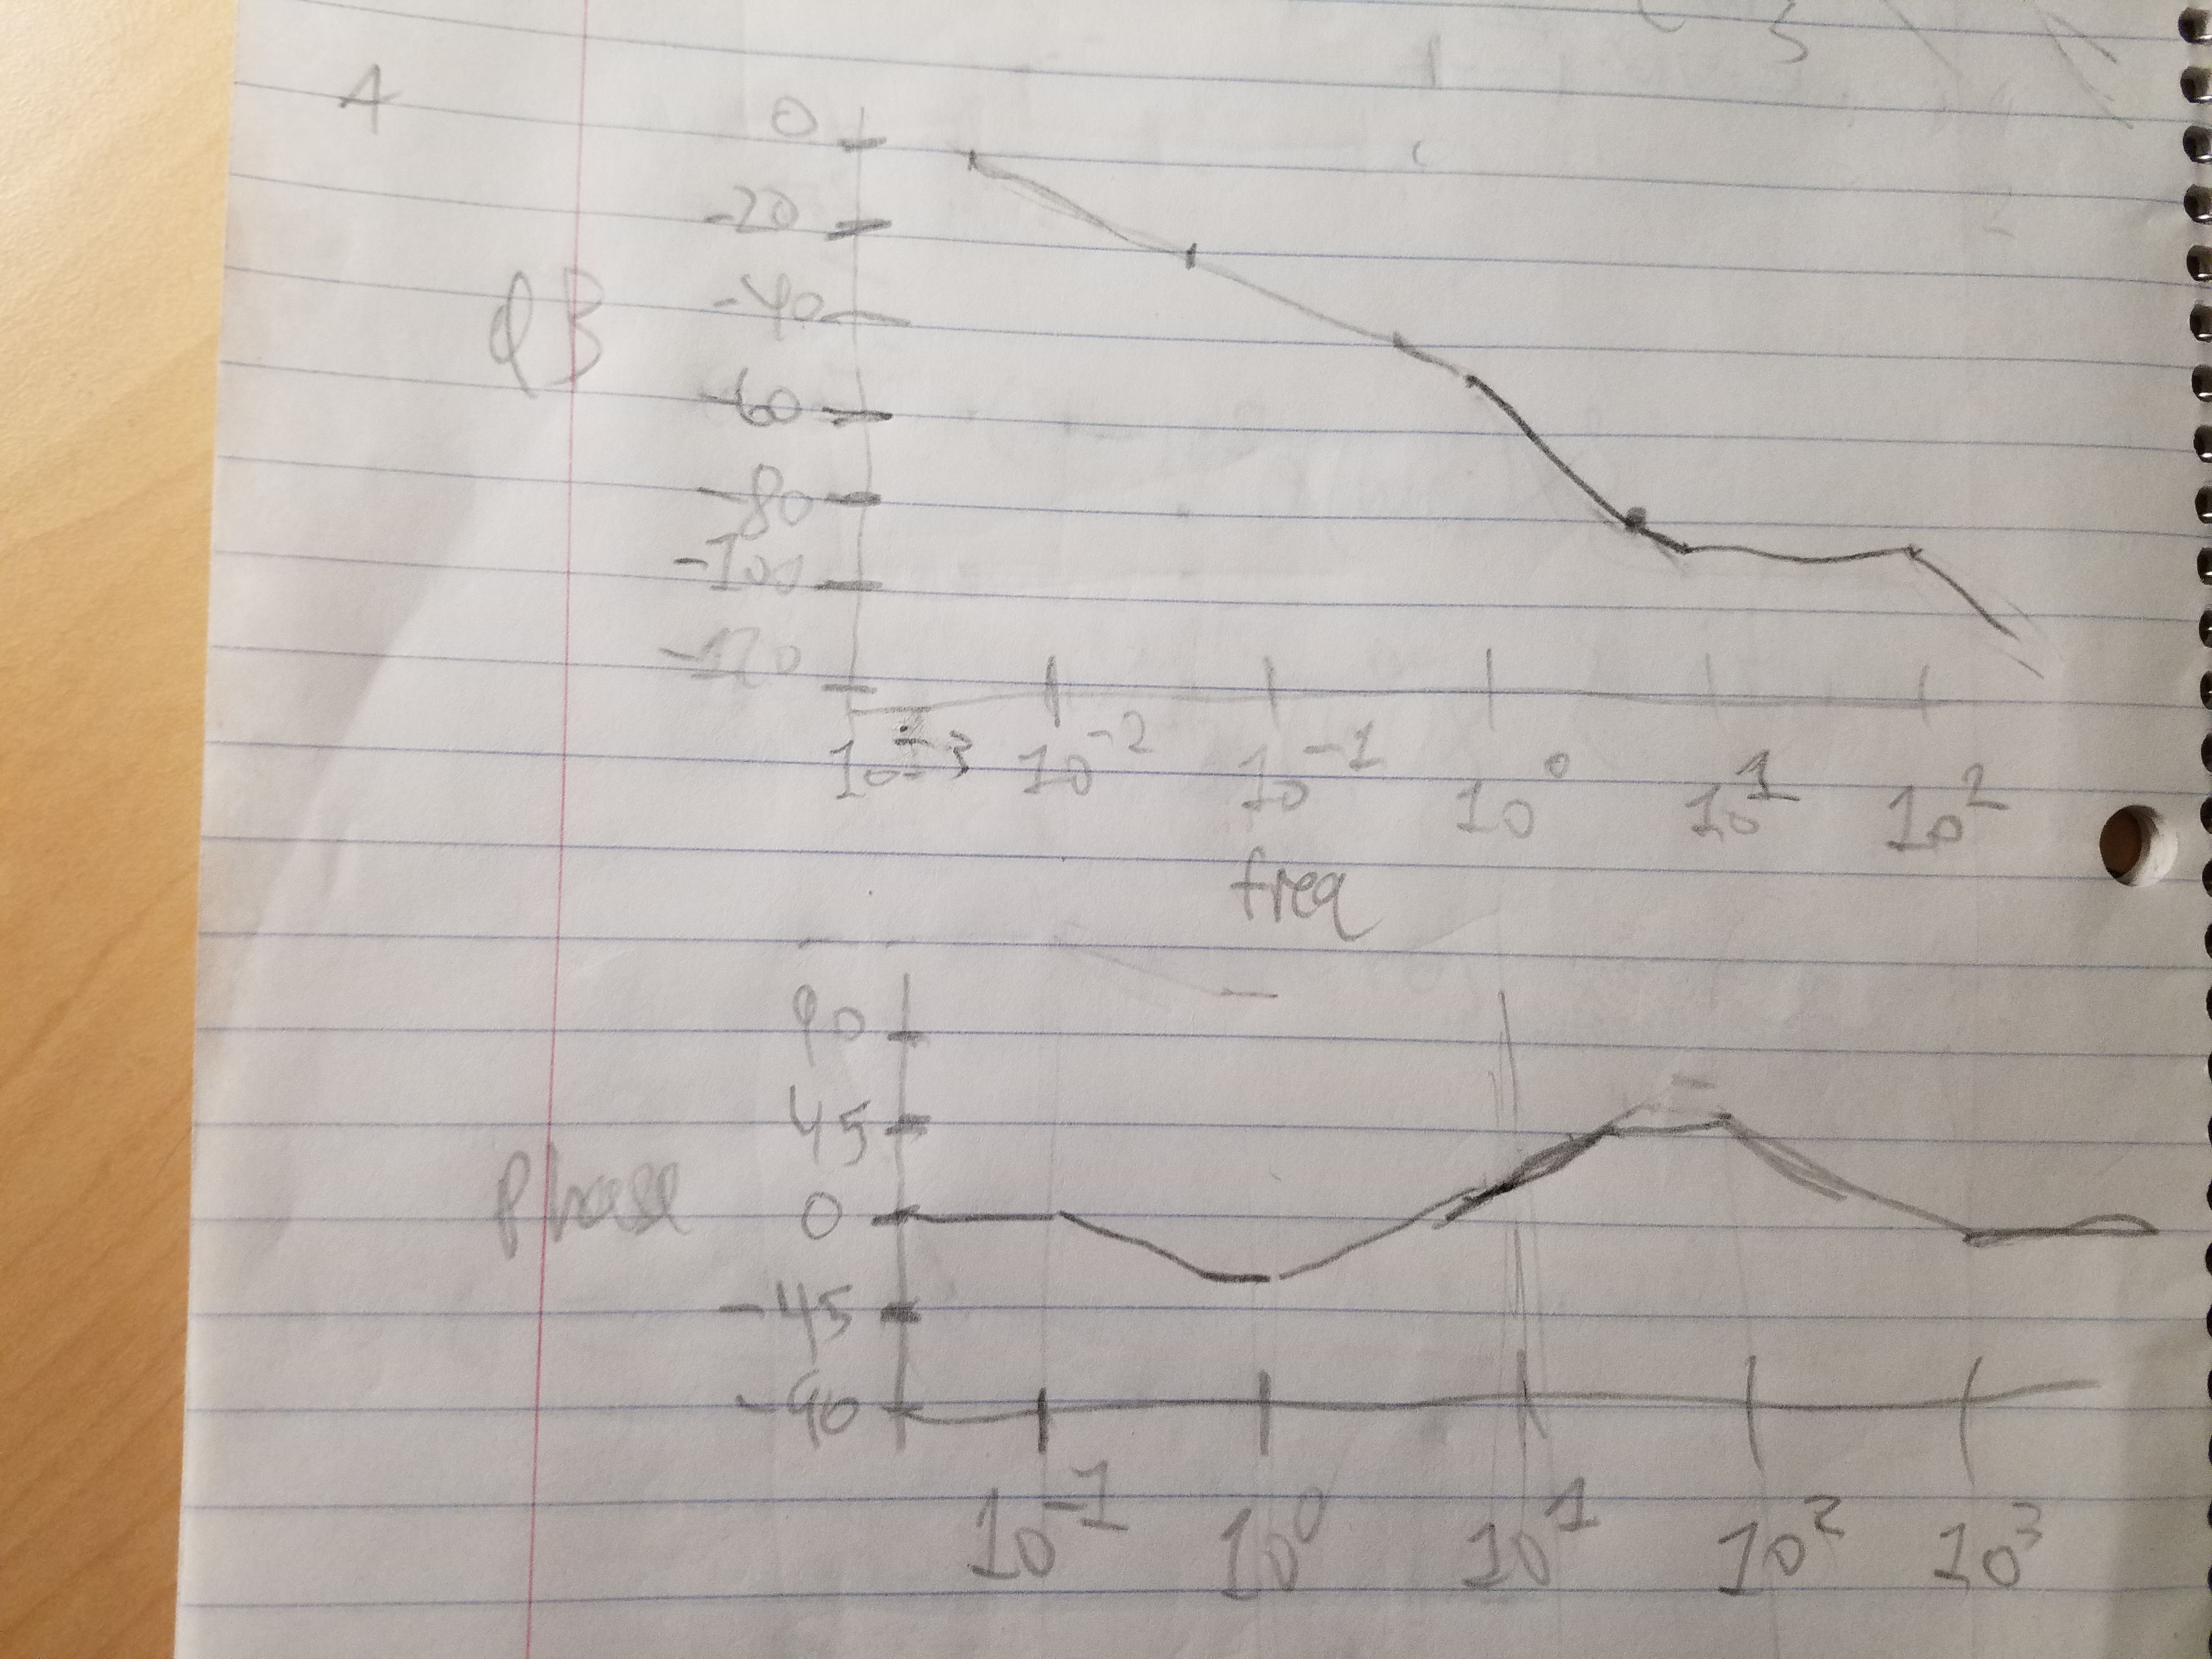 4
dB
0
-20
-40
-60
-80
-100
-120
10^-3 10^-2 10^-1 10^0 10^1 10^2
freq
Phase
90
45
0
-45
-90
10^-1 10^0 10^1 10^2 10^3